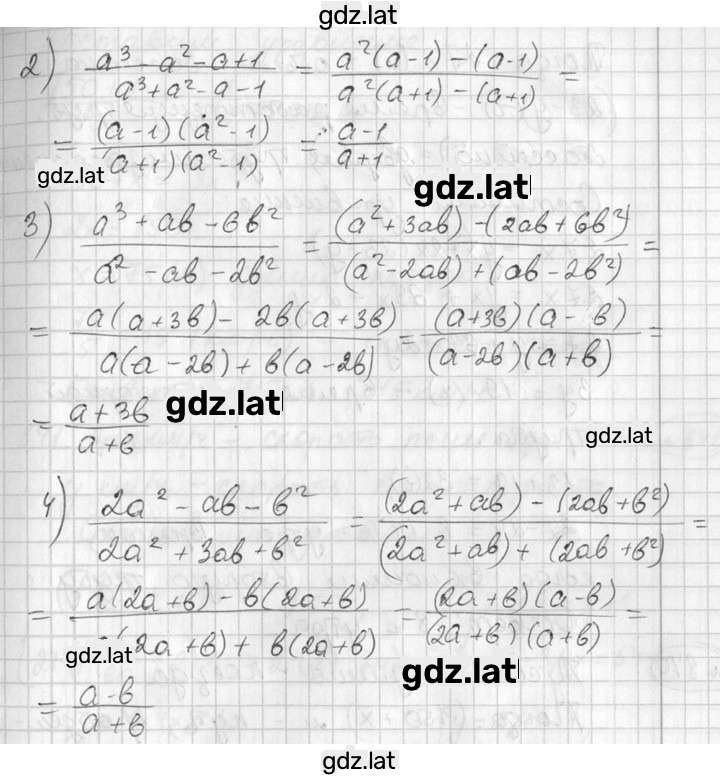 gdz.lat
2) (a³ - a² - a + 1)/(a³ + a² - a - 1) = (a²(a-1) - (a-1))/(a²(a+1) - (a+1)) =
= ((a-1)(a²-1))/((a+1)(a²-1)) = (a-1)/(a+1)
gdz.lat
gdz.lat
3) (a³ + ab - 6b²)/(a² - ab - 2b²) = ((a² + 3ab) - (2ab + 6b²))/((a² - 2ab) + (ab - 2b²)) =
= (a(a+3b) - 2b(a+3b))/(a(a-2b) + b(a-2b)) = ((a+3b)(a - b))/((a-2b)(a+b)) =
= (a+3b)/(a+b)
gdz.lat
gdz.lat
4) (2a² - ab - b²)/(2a² + 3ab + b²) = ((2a² + ab) - (2ab + b²))/((2a² + ab) + (2ab + b²)) =
= (a(2a+b) - b(2a+b))/((2a+b) + b(2a+b)) = ((2a+b)(a-b))/((2a+b)(a+b)) =
gdz.lat
gdz.lat
= (a-b)/(a+b)
gdz.lat